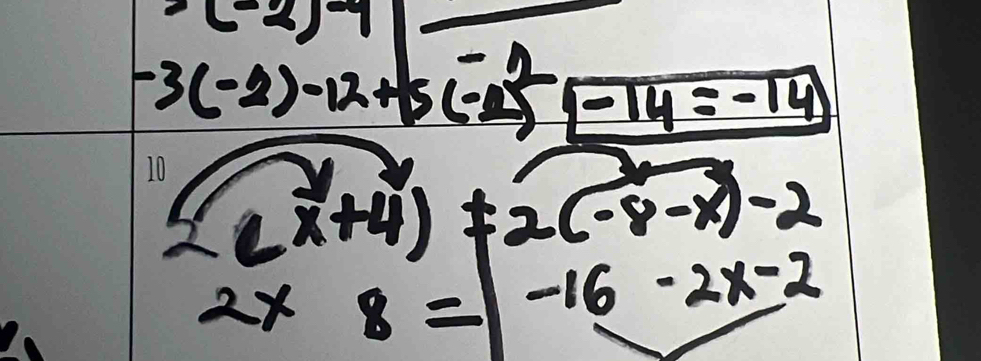 (-2)-4
-3(-2)-12+5(-2) -14=-14
10
2(x+4)=2(-8-x)-2
2x 8 = -16 -2x-2